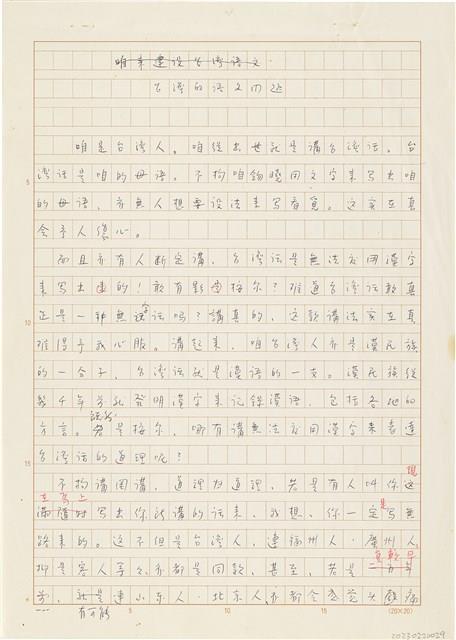 咱來建設台灣語文
台灣的語文問題
咱是台灣人。咱從出世就是講台灣話。台
灣話是咱的母語。不拘咱
5
的母語，亦無人想要設法來寫看覓。這實在真
會予人傷心。
而且亦有人斷定講，台灣話是無法度用漢字
來寫出的！敢有影按尔？難道台灣話敢真
10
正是一種無字話嗎？講真的，這款講法實在真
難得予我心服。講起來，咱台灣人亦是漢民族
的一份子，台灣話就是漢語的一支。漢民族從
數千年前就發明漢字來記錄漢語，包括各地的
方言。若是按尔，哪有講無法度用漢字來表達
15
台灣話的道理呢？
不拘講罔講，道理歸道理，若是有人叫你這
寫出你所講的話來，我想，你一定是寫無
路來的。這不但是台灣人，連福州人、廣州人
抑是客人等々，亦都是同款，甚至，若是
就是連山東人、北京人亦都會
有可能
5
10
15
(20×20)
20230220029